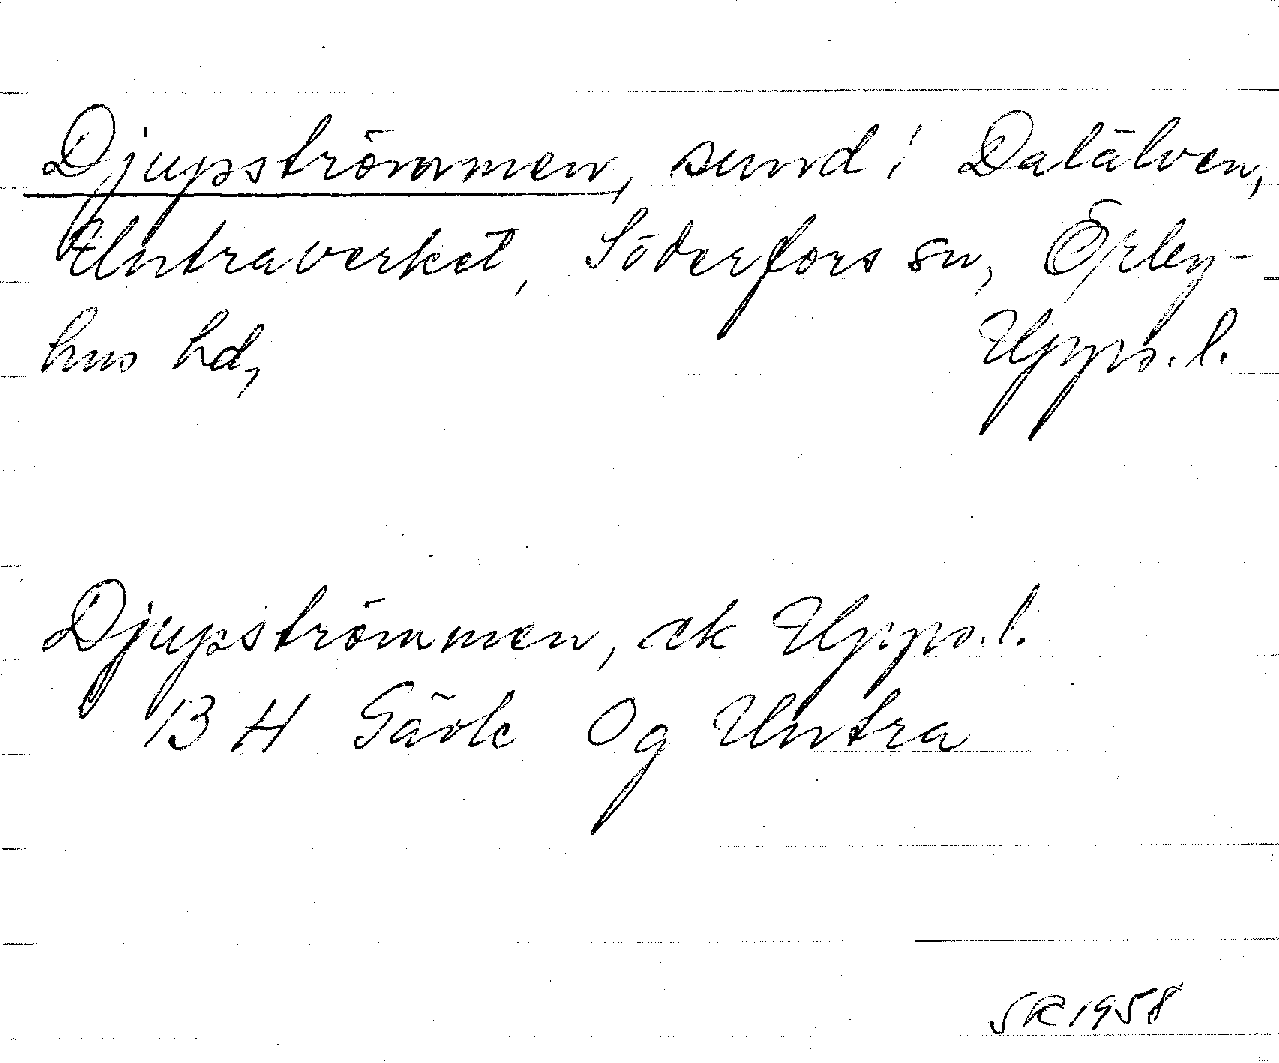 Djupströmmen, sund i Dalälven,
Untraverket, Söderfors sn, Örby-
hus hd, Upps.l.
Djupströmmen, ek Upps.l.
13 H Gävle 0g Untra
SR 1958